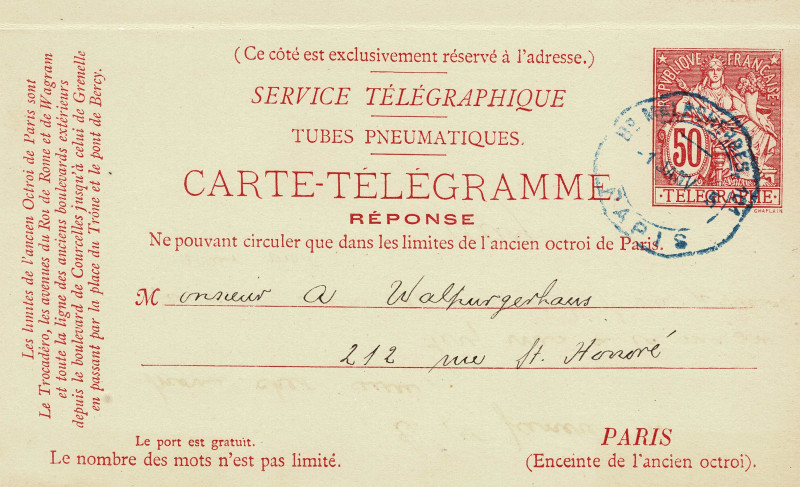 (Ce côté est exclusivement réservé à l'adresse.)
SERVICE TÉLÉGRAPHIQUE
TUBES PNEUMATIQUES.
CARTE-TÉLÉGRAMME
RÉPONSE
Ne pouvant circuler que dans les limites de l'ancien octroi de Paris.
Monsieur A Walpurgerhaus
212 rue St. Honoré
PARIS
(Enceinte de l'ancien octroi).
Le port est gratuit.
Le nombre des mots n'est pas limité.
Les limites de l'ancien Octroi de Paris sont
Le Trocadéro, les avenues du Roi de Rome et de Wagram
et toute la ligne des anciens boulevards extérieurs
depuis le boulevard de Courcelles jusqu'à celui de Grenelle
en passant par la place du Trône et le pont de Bercy.
RÉPUBLIQUE FRANÇAISE
50
TÉLÉGRAMME
CHAPLAIN
Bd MALESHERBES
PARIS